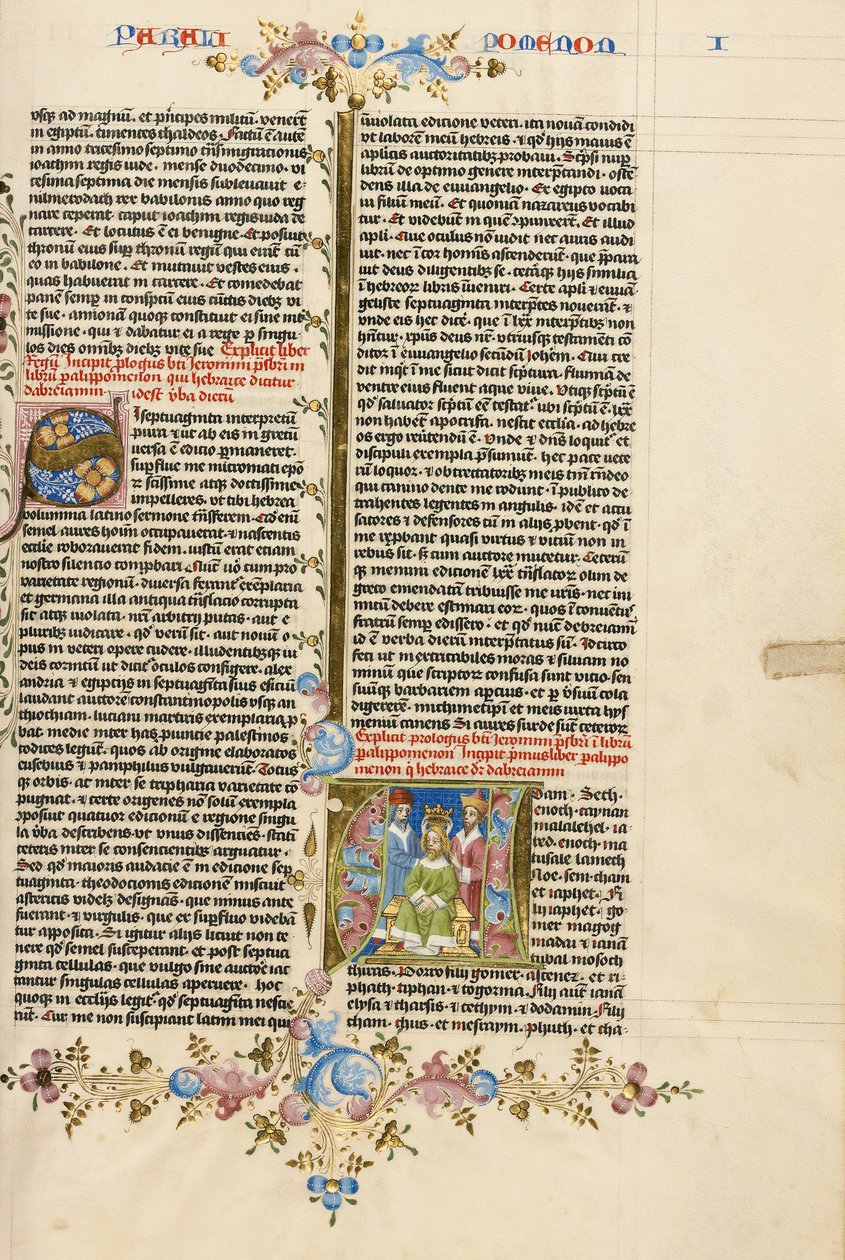 PARALI POMENON I
usq3 ad magnū. et pñcipes militū. venerūt
in egiptū. timentes chaldeos. Factū ē autē
in anno tricesimo septimo tñsmigrationis
ioachim regis iude. mense duodecimo. vi
cesima septima die mensis subleuauit e-
uilmerodach rex babilonis anno quo reg
nare ceperat. caput ioachim regis iuda de
carcere. Et locutus ē ei benigne. Et posuit
thronū eius sup thronū regū qui erāt cū
eo in babilone. Et mutauit vestes eius.
quas habuerat in carcere. Et comedebat
panē semp in conspcū eius cūctis dieb3 vi
te sue. annonā quoq3 constituit ei sine int
missione. qui & dabatur ei a rege p singu
los dies omīb3 dieb3 vite sue Explicit liber
Regū Incipit plogus bti Jeronimi psbri in
librū palippomenon qui hebraice dicitur
dabreiamin idest vba dierū
SI septuaginta interpretū
pura & ut ab eis in grecū
uersa ē edicio pmaneret.
supflue me mi cromati epō
scissime atq3 doctissime
impelleres. vt tibi hebrea
volumina latino sermone tñsferem. Qđ enī
semel aures hoīm occupauerat. & nascentis
ecclie roborauerat fidem. iustū erat etiam
nostro silencio comphari. Nūc uō cum pro
varietate regionū. diuersa ferant exēplaria
et germana illa antiqua tñslacio corrupta
sit atq3 uiolata. nrī arbitrij putas. aut e
pluribus iudicare. qđ verū sit. aut nouū o
pus in veteri opere cudere. illudentibusq3 iu
deis cornicū ut dicit oculos configere. alex
andria & egiptus in septuagīta suis esiciū
laudant auctorē constantinopolis vsq3 an
thiochiam. luciani martiris exemplaria p
bat. medie inter has puincie palestinos
codices legūt. quos ab origine elaboratos
eusebius et pamphilus vulgauerūt. Totus
q3 orbis. ac inter se tripharia varietate cō
pugnat. & certe origenes nō solū exempla
ɔposuit quatuor edicionū e regione singu
la vba describens. vt vnus dissenciēs. statī
ceteris inter se consencientib3 arguatur.
Sed qđ maioris audacie ē in edicione sep
tuaginta. theodocionis edicionē miscuit
astericis videlz designās. que minus ante
fuerant. & virgulis. que ex supfluo videbā
tur apposita. Si igitur alijs licuit non te
nere qđ semel susceperant. et post septua
ginta cellulas. que vulgo sine auctore iac
tantur singulas cellulas aperuere. hoc
quoq3 in ecclijs legit. qđ septuagīta nescie
rūt. Cur me non suscipiant latini mei qui
īuiolata edicione veteri. ita nouā condidi
vt laborē meū hebreis. & qđ hijs maius ē
aplicis auctoritatib3 probaui. Scpsi nup
librū de optimo genere interptandi. ostē
dens illa de euuangelio. Ex egipto uoca
ui filiū meū. Et quoniā nazareus vocabi
tur. Et videbunt in quē ɔpunxerūt. Et illud
apli. Que oculus nō uidit nec auris audi
uit. nec ī cor homīs ascenderūt. que ppara
uit deus diligentib3 se. ceteraq3 hijs similia
ī hebreor libris īueniri. Certe apli & euuā-
geliste septuaginta interptes nouerāt. &
vnde eis hec dicē. que ī lxx interptib3 non
hñtur. xpūs deus nr. vtriusq3 testamēti cō
ditor ī euuangelio secūdū Johēm. Qui cre
dit inqt ī me sicut dicit scptura. flumīa de
ventre eius fluent aque viue. Vtiq3 scptū ē
qđ saluator scptū eē testat. vbi scptū ē. lxx
non habēt. apocrifa. nescit ecclia. ad hebre
os ergo reūtendū ē. vnde & dñs loquit et
discipuli exempla psumūt. hec pace vete
rū loquor. & obtrectatorib3 meis tm rñdeo
qui canino dente me rodunt. ī publico de-
trahentes legentes in angulis. idē et accu
satores & defensores cū in alijs pbent. qđ ī
me repbant quasi virtus & vitiū non in
rebus sit. s3 cum auctore mutetur. Ceterū
q3 memini edicionē lxx tñslator olim de
greco emendatā tribuisse me uris. nec ini
micū debere estimari eor. quos ī conuētu
fratrū semp edissero. et qđ nūc debreiamī
id ē verba dierū interptatus sū. Jdcirco
feci ut inextricabiles moras & siluam no
minū que scriptor confusa sunt vitio. sen
suūq3 barbariem apcius. et p vsuū cola
digererē. michimetipi et meis iuxta hys
meniū canens Si aures surde sūt ceteror
Explicit prologus bti Jeronimi psbri ī librū
palippomenon Incipit pmus liber palippo
menon q hebraice dr dabreiamin
Adam. Seth.
enoch. caynan
malalehel. ia-
red. enoch. ma
tusale lamech
Noe. sem. cham
et iaphet. Fi
lij iaphet. go-
mer magog
madai & ianā
tubal mosoch
thiras. Porro filij gomer. ascenez. et ri-
phath. tiphan. & togorma. Filij aut ianā
elysa & tharsis. & cethym. & dodanim. Filij
cham. chus. et mesraym. phuth. et cha-